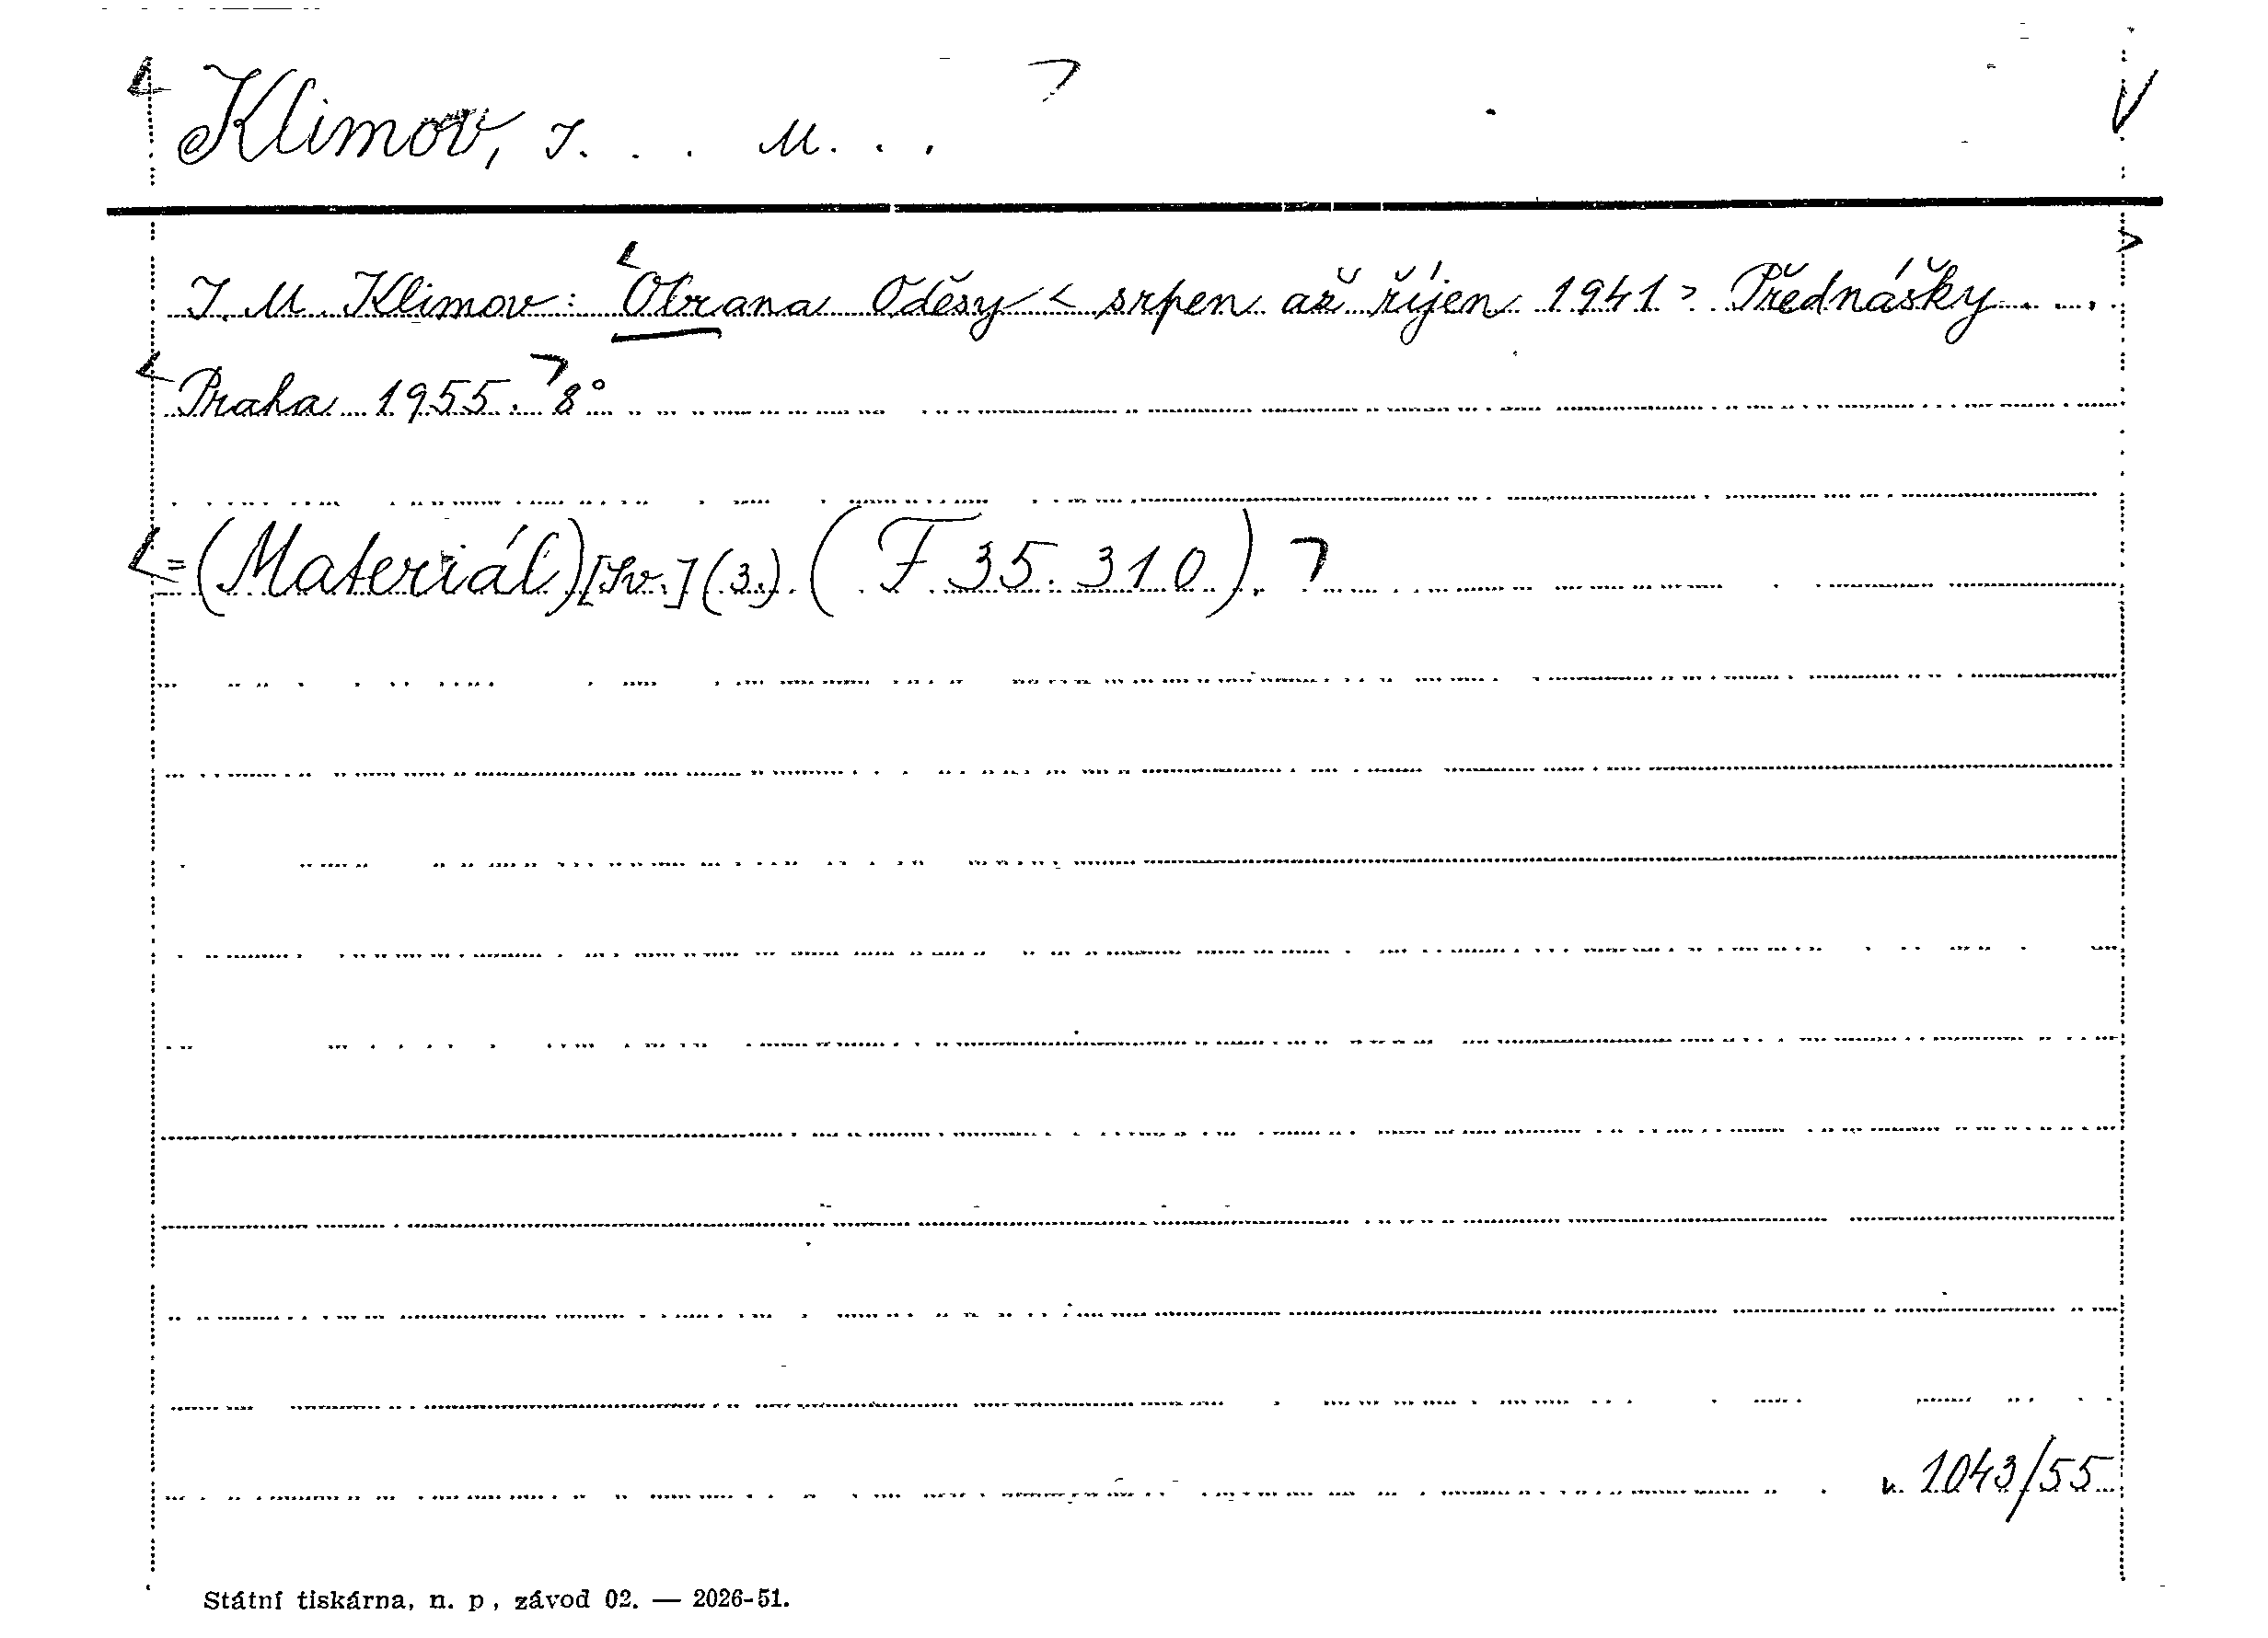 Klimov, I. . . M. . .
I. M. Klimov: Obrana Oděsy < srpen až říjen 1941 > Přednášky . . .
Praha 1955. 8°
= (Materiál) [Sv.] (3.) (F 35.310).
1043/55
Státní tiskárna, n. p., závod 02. — 2026-51.